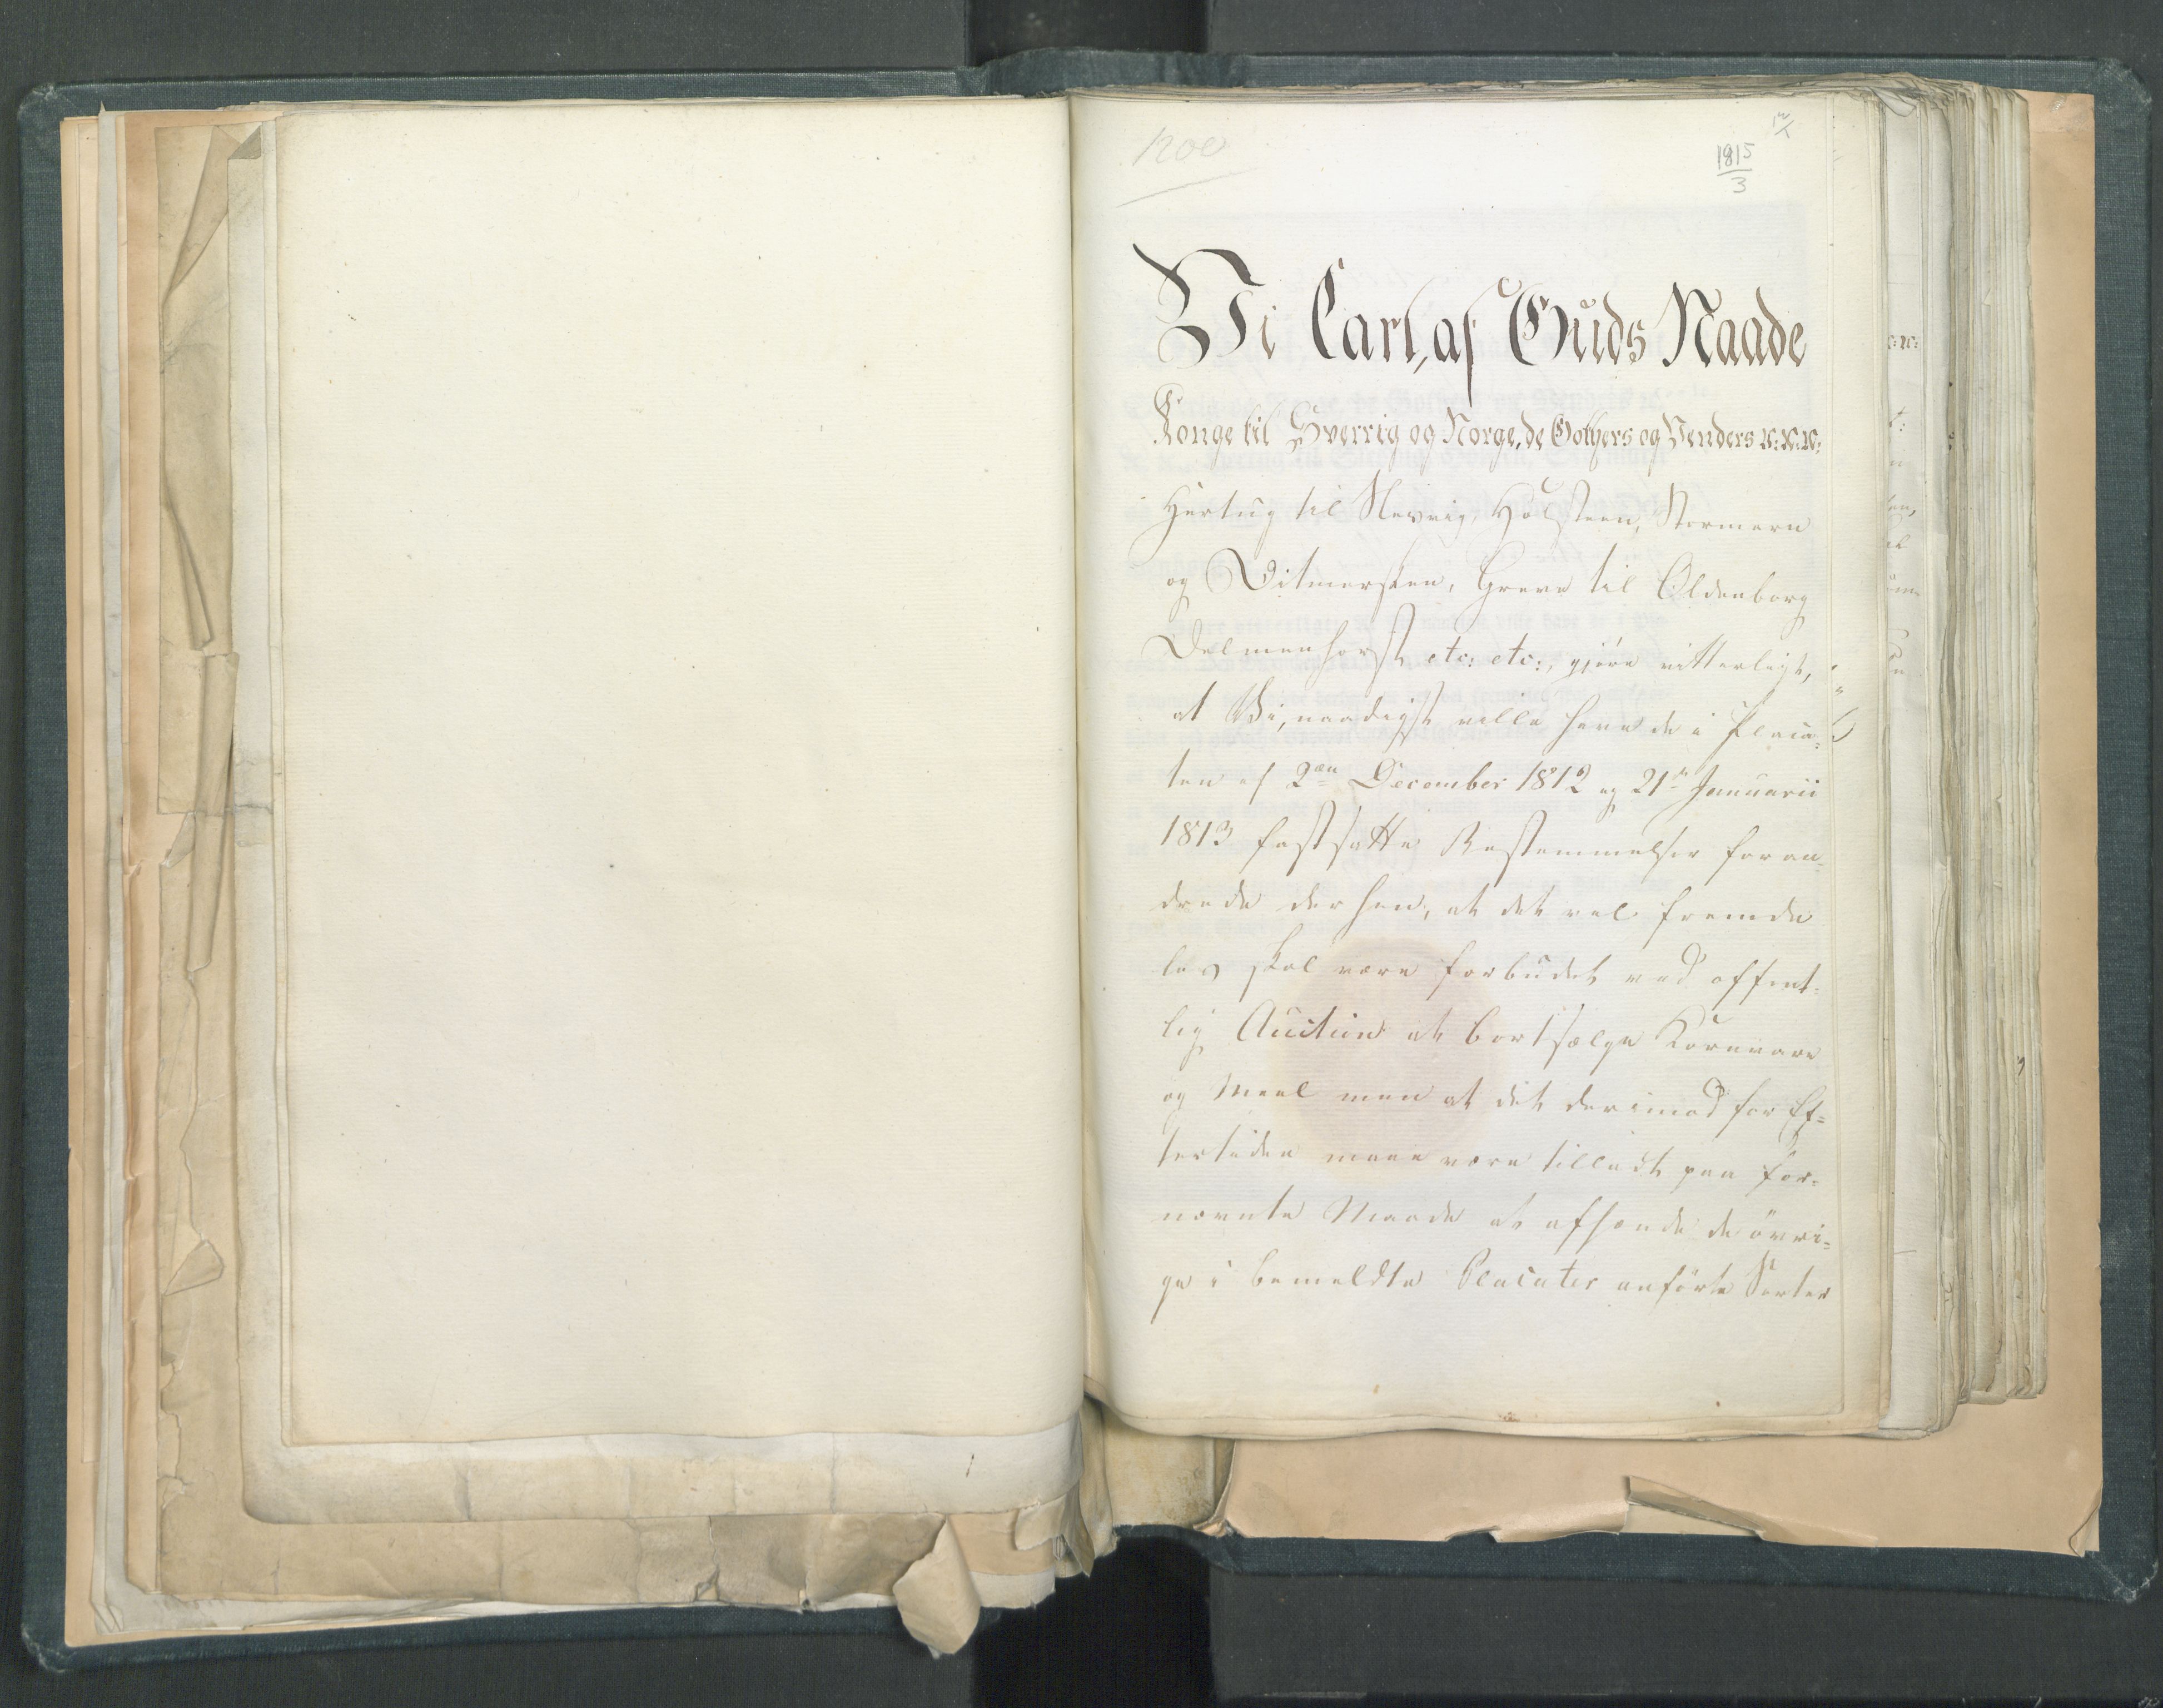 1815
3
Vi Carl, af Guds Naade
Konge til Sverrig og Norge, de Gothers og Venders &c: &c: &c:
Hertug til Slesvig, Holsteen, Stormarn
og Ditmersken, Greve til Oldenborg
Delmenhorst etc: etc:, gjöre vitterligt,
at Vi, naadigst ville have de i Placa-
ten af 2den December 1812 og 21de Januarii
1813 fastsatte Bestemmelser foran-
drede derhen, at det vel fremde
les skal være forbudet ved offent-
lig Auction at bortsælge Kornvare
og Meel men at det derimod for Ef-
tertiden maae være tilladt paa for-
nævnte Maade at afhænde de övri-
ge i bemeldte Placater anförte Sorter